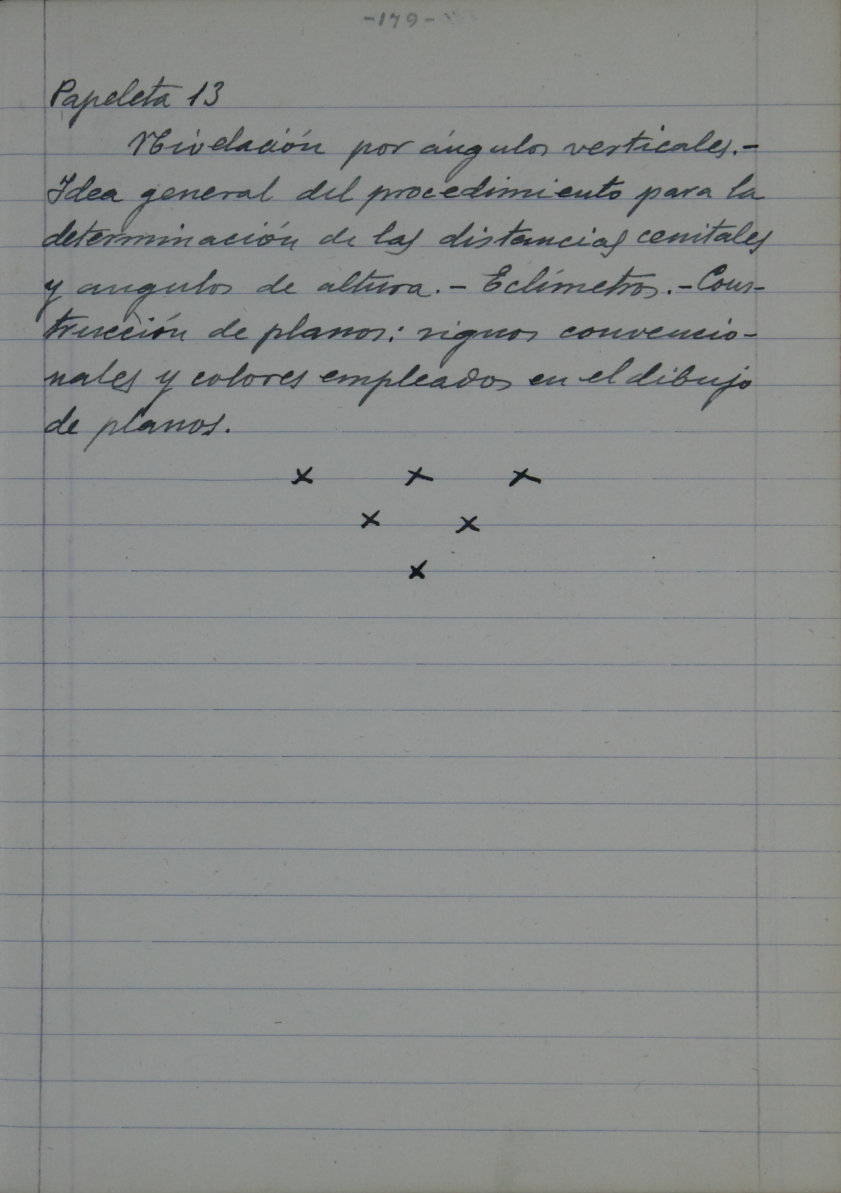 -179-
Papeleta 13
Nivelación por ángulos verticales.-
Idea general del procedimiento para la
determinación de las distancias cenitales
y angulos de altura.- Eclímetros.- Cons-
trucción de planos: signos convencio-
nales y colores empleados en el dibujo
de planos.
x x x
x x
x